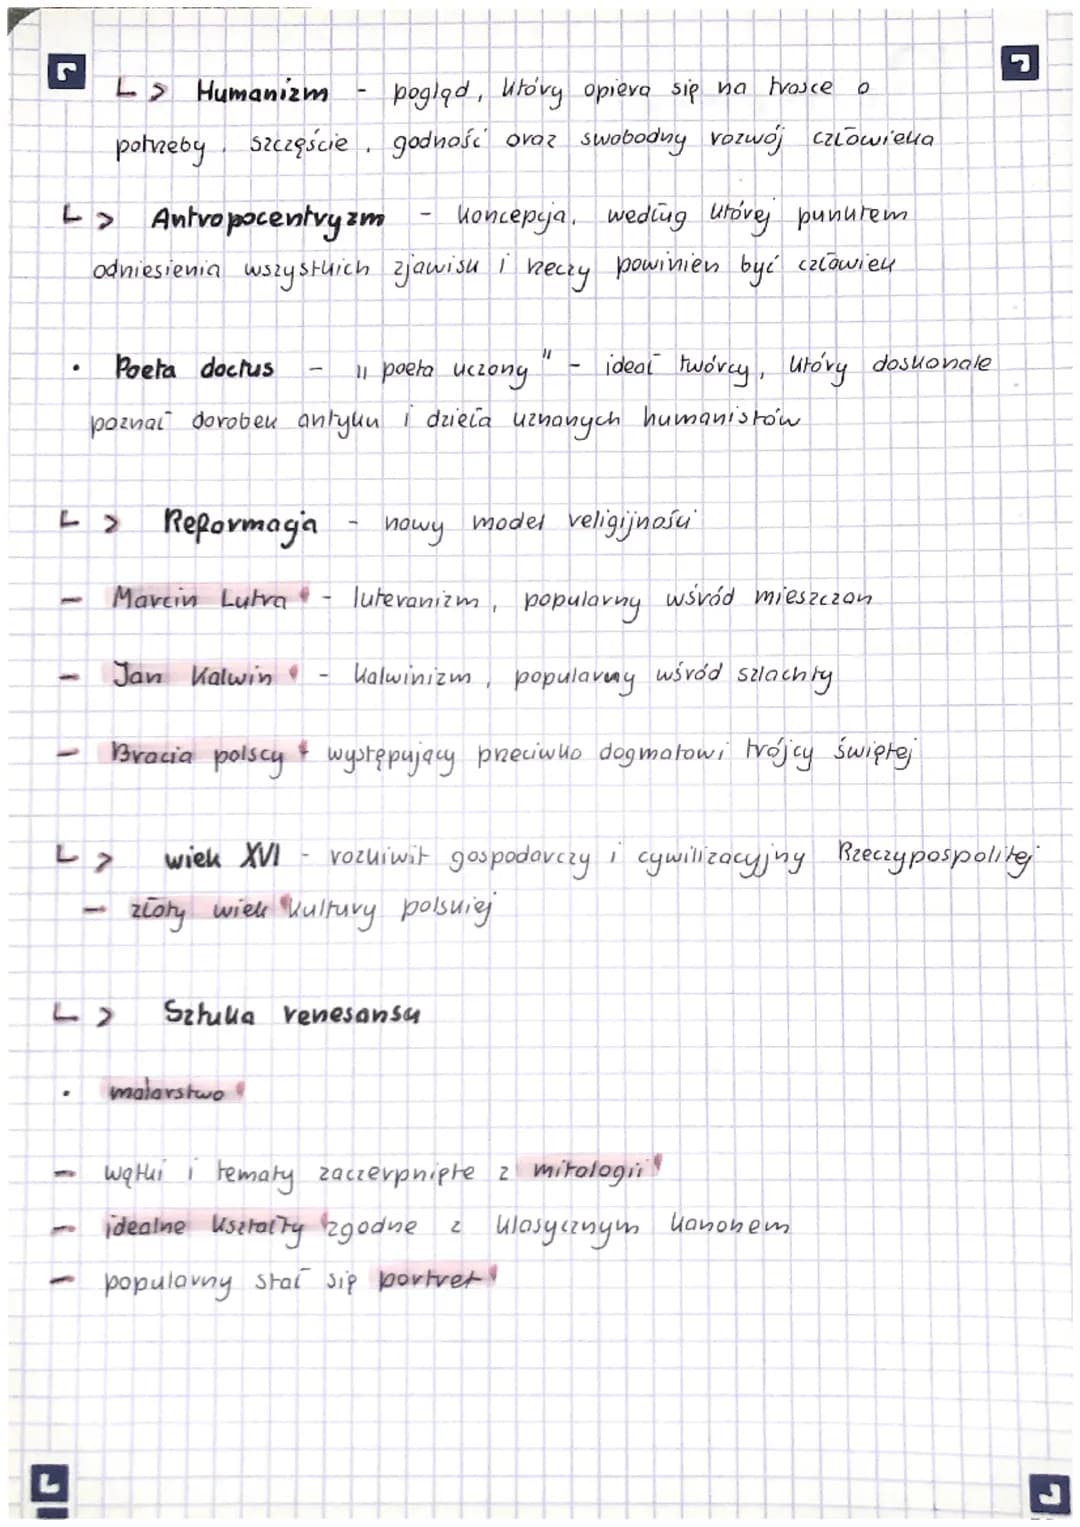 ↳ Humanizm - pogląd, który opiera się na trosce o
potrzeby, szczęście, godność oraz swobodny rozwój człowieka
↳ Antropocentryzm - koncepcja, według której punktem
odniesienia wszystkich zjawisk i rzeczy powinien być człowiek
• Poeta doctus - „poeta uczony" - ideał twórcy, który doskonale
poznał dorobek antyku i dzieła uznanych humanistów
↳ Reformacja - nowy model religijności
- Marcin Lutra - luteranizm, popularny wśród mieszczan
- Jan Kalwin - kalwinizm, popularny wśród szlachty
- Bracia polscy - występujący przeciwko dogmatowi trójcy świętej
↳ wiek XVI - rozkiwit gospodarczy i cywilizacyjny Rzeczypospolitej
- złoty wiek kultury polskiej
↳ Sztuka renesansu
• malarstwo
- wątki i tematy zaczerpnięte z mitologii
- idealne kształty zgodne z klasycznym kanonem
- popularny stał się portret